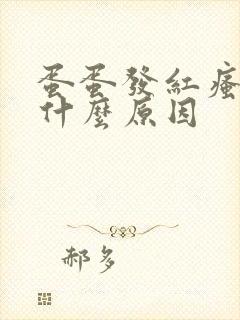 蛋蛋發紅瘙
什麼原因
郝多